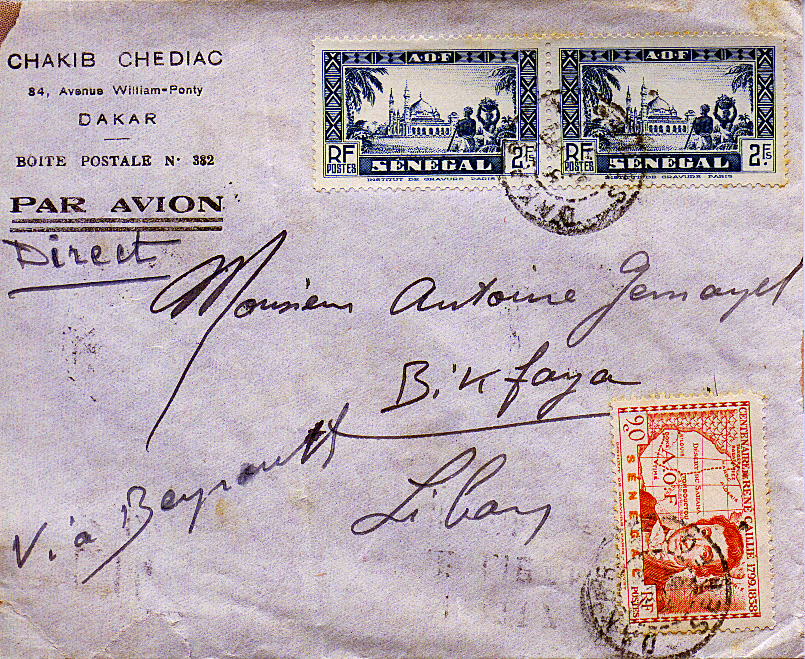 CHAKIB CHEDIAC
84, Avenue William-Ponty
DAKAR
BOITE POSTALE N· 382
PAR AVION
Direct
A·O·F
RF
POSTES
SENEGAL
2Fs.
INSTITUT DE GRAVURE PARIS
A·O·F
RF
POSTES
SENEGAL
2Fs.
INSTITUT DE GRAVURE PARIS
DAKAR
Monsieur Antoine Gemayel
Bikfaya
Via Beyrouth
Liban
CENTENAIRE DE RENÉ CAILLIÉ 1799-1838
90c
SENEGAL
A.O.F
RF
POSTES